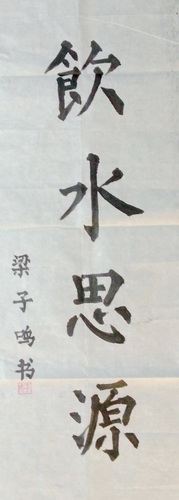 飲水思源
梁子鸣书